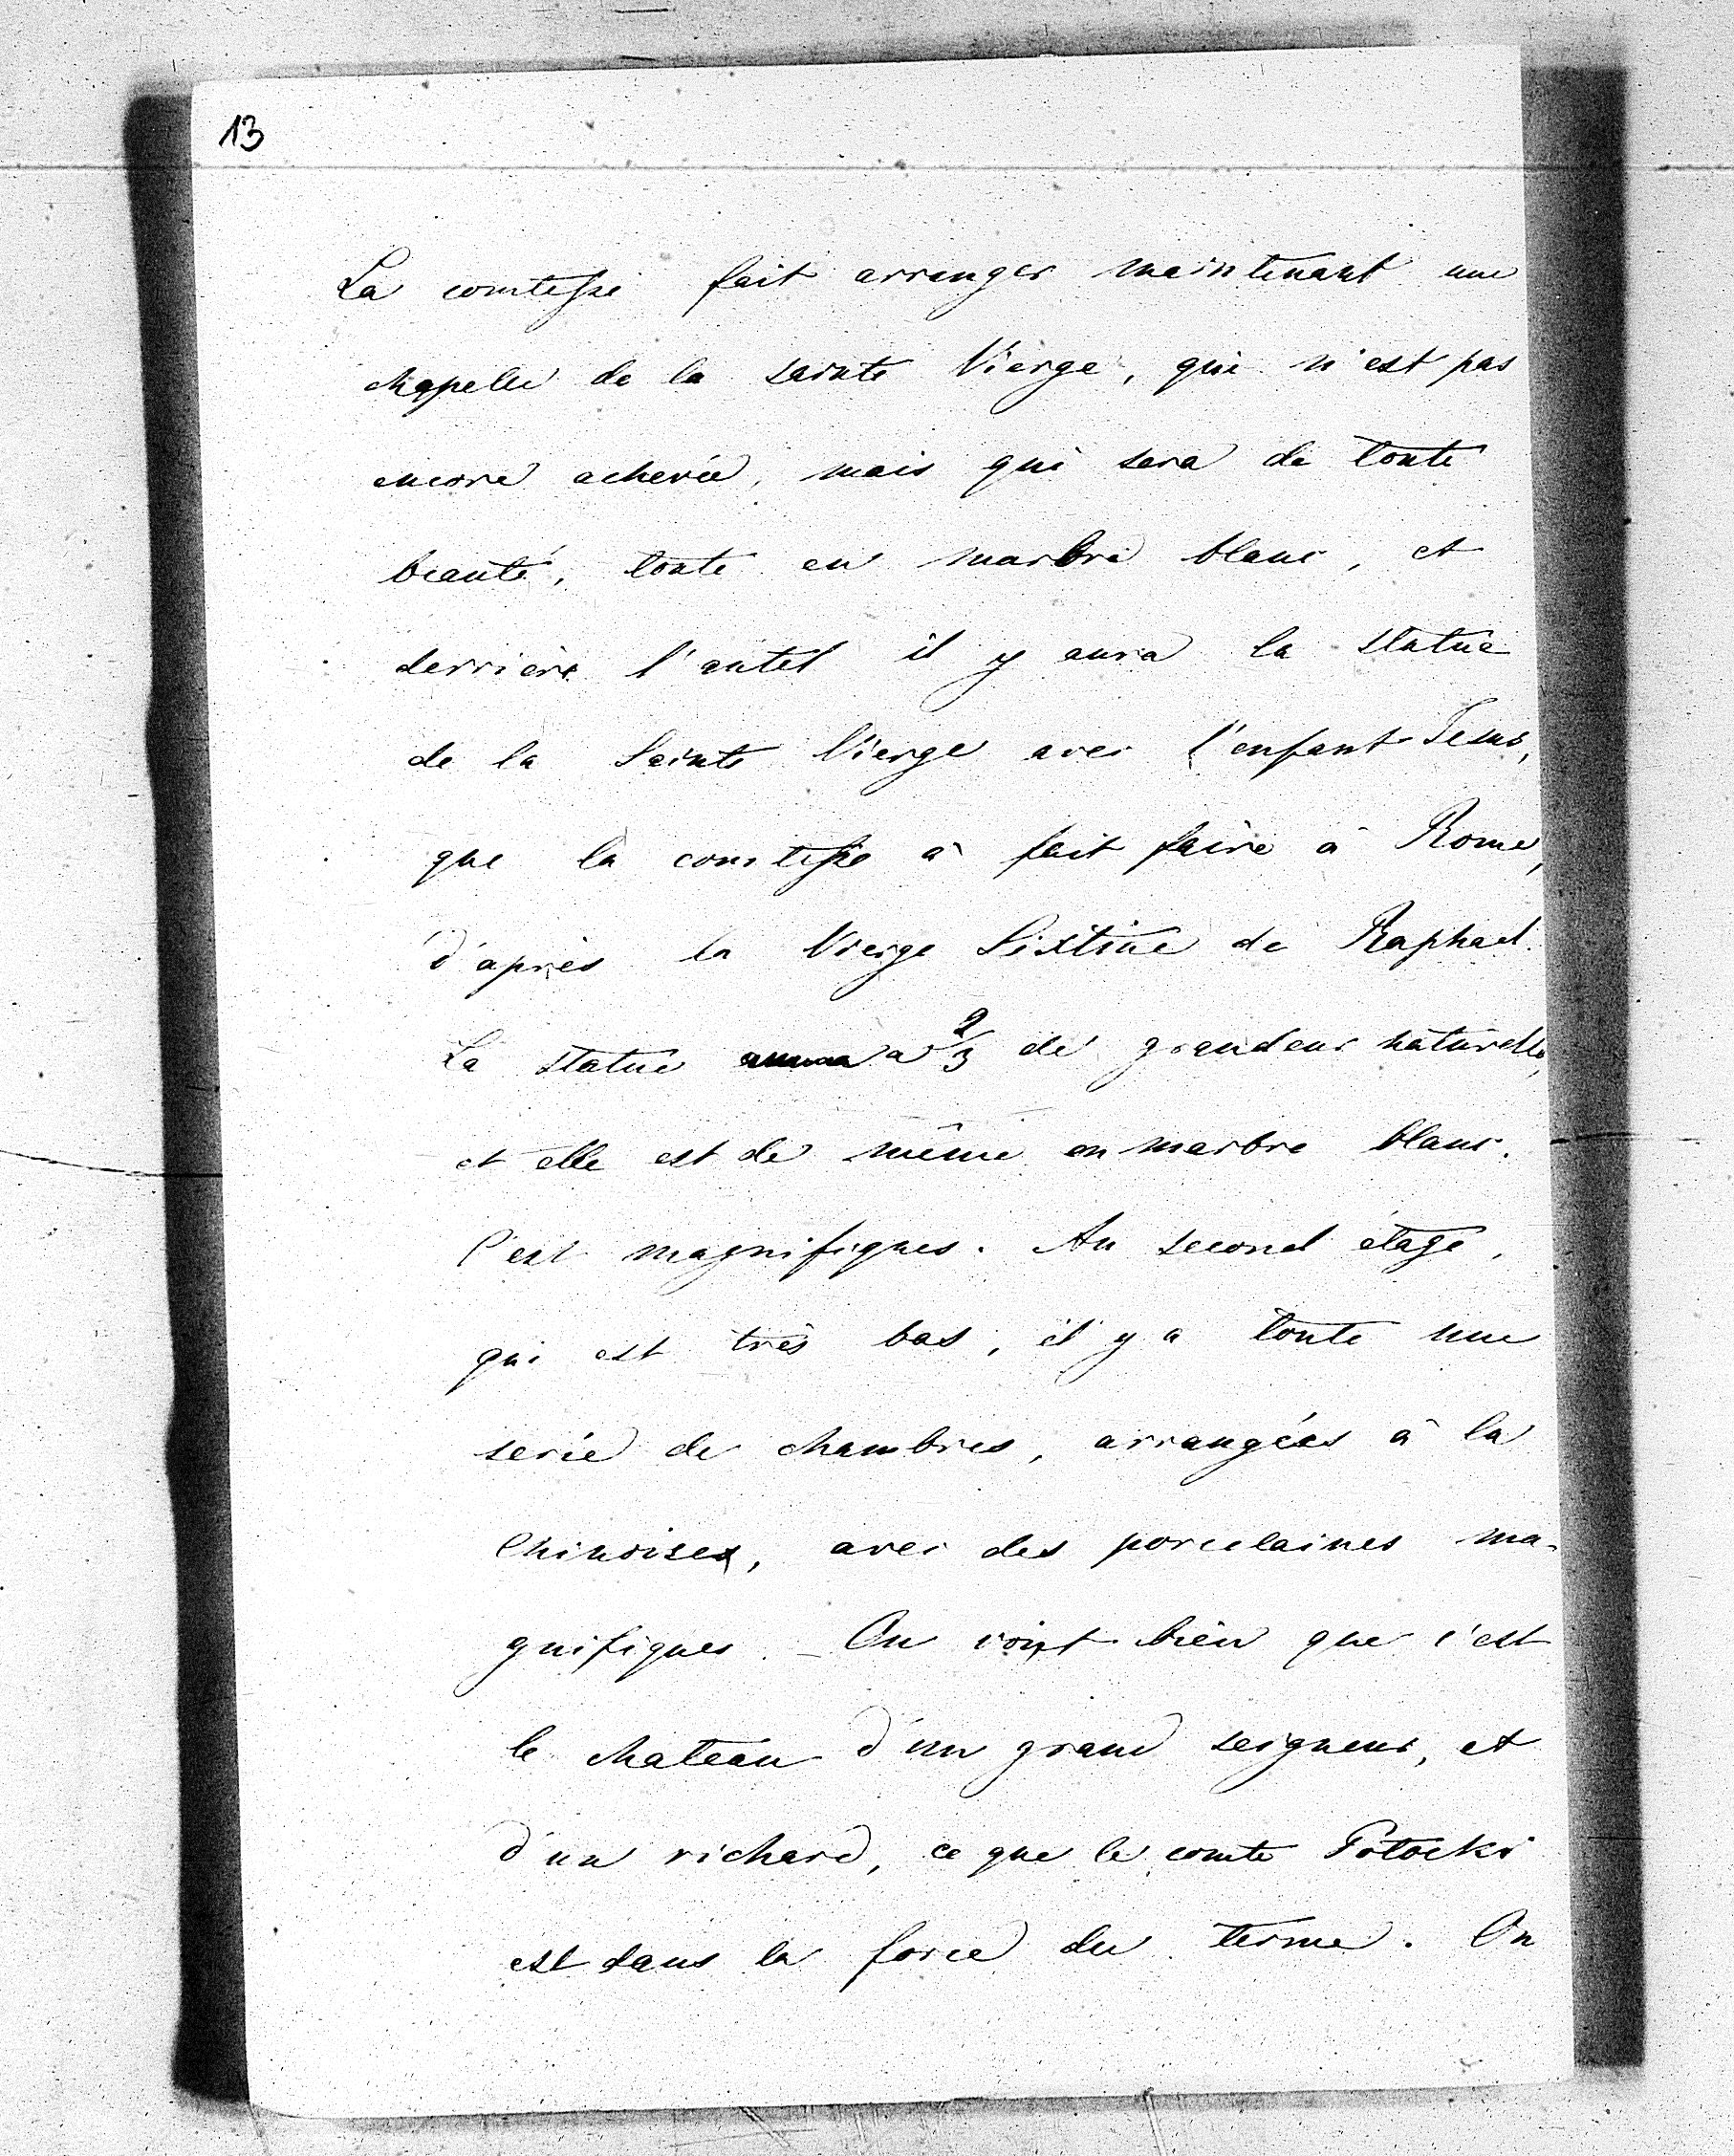 13
La comtesse fait arranger maintenant une
chapelle de la sainte Vierge, qui n'est pas
encore achevée, mais qui sera de toute
beauté, toute en marbre blanc, et
derrière l'autel il y aura la statue
de la Sainte Vierge avec l'enfant Jesus,
que la comtesse à fait faire à Rome,
d'après la Vierge Sixtine de Raphael.
La statue a 2/3 de grandeur naturelle,
et elle est de même en marbre blanc.
C'est magnifiques. Au second étage,
qui est très bas, il y a toute une
serie de chambres, arrangées à la
Chinoises, avec des porcelaines ma-
gnifiques. – On voit bien que c'est
le chateau d'un grand seigneur, et
d'un richard, ce que le comte Potocki
est dans la force du terme. On